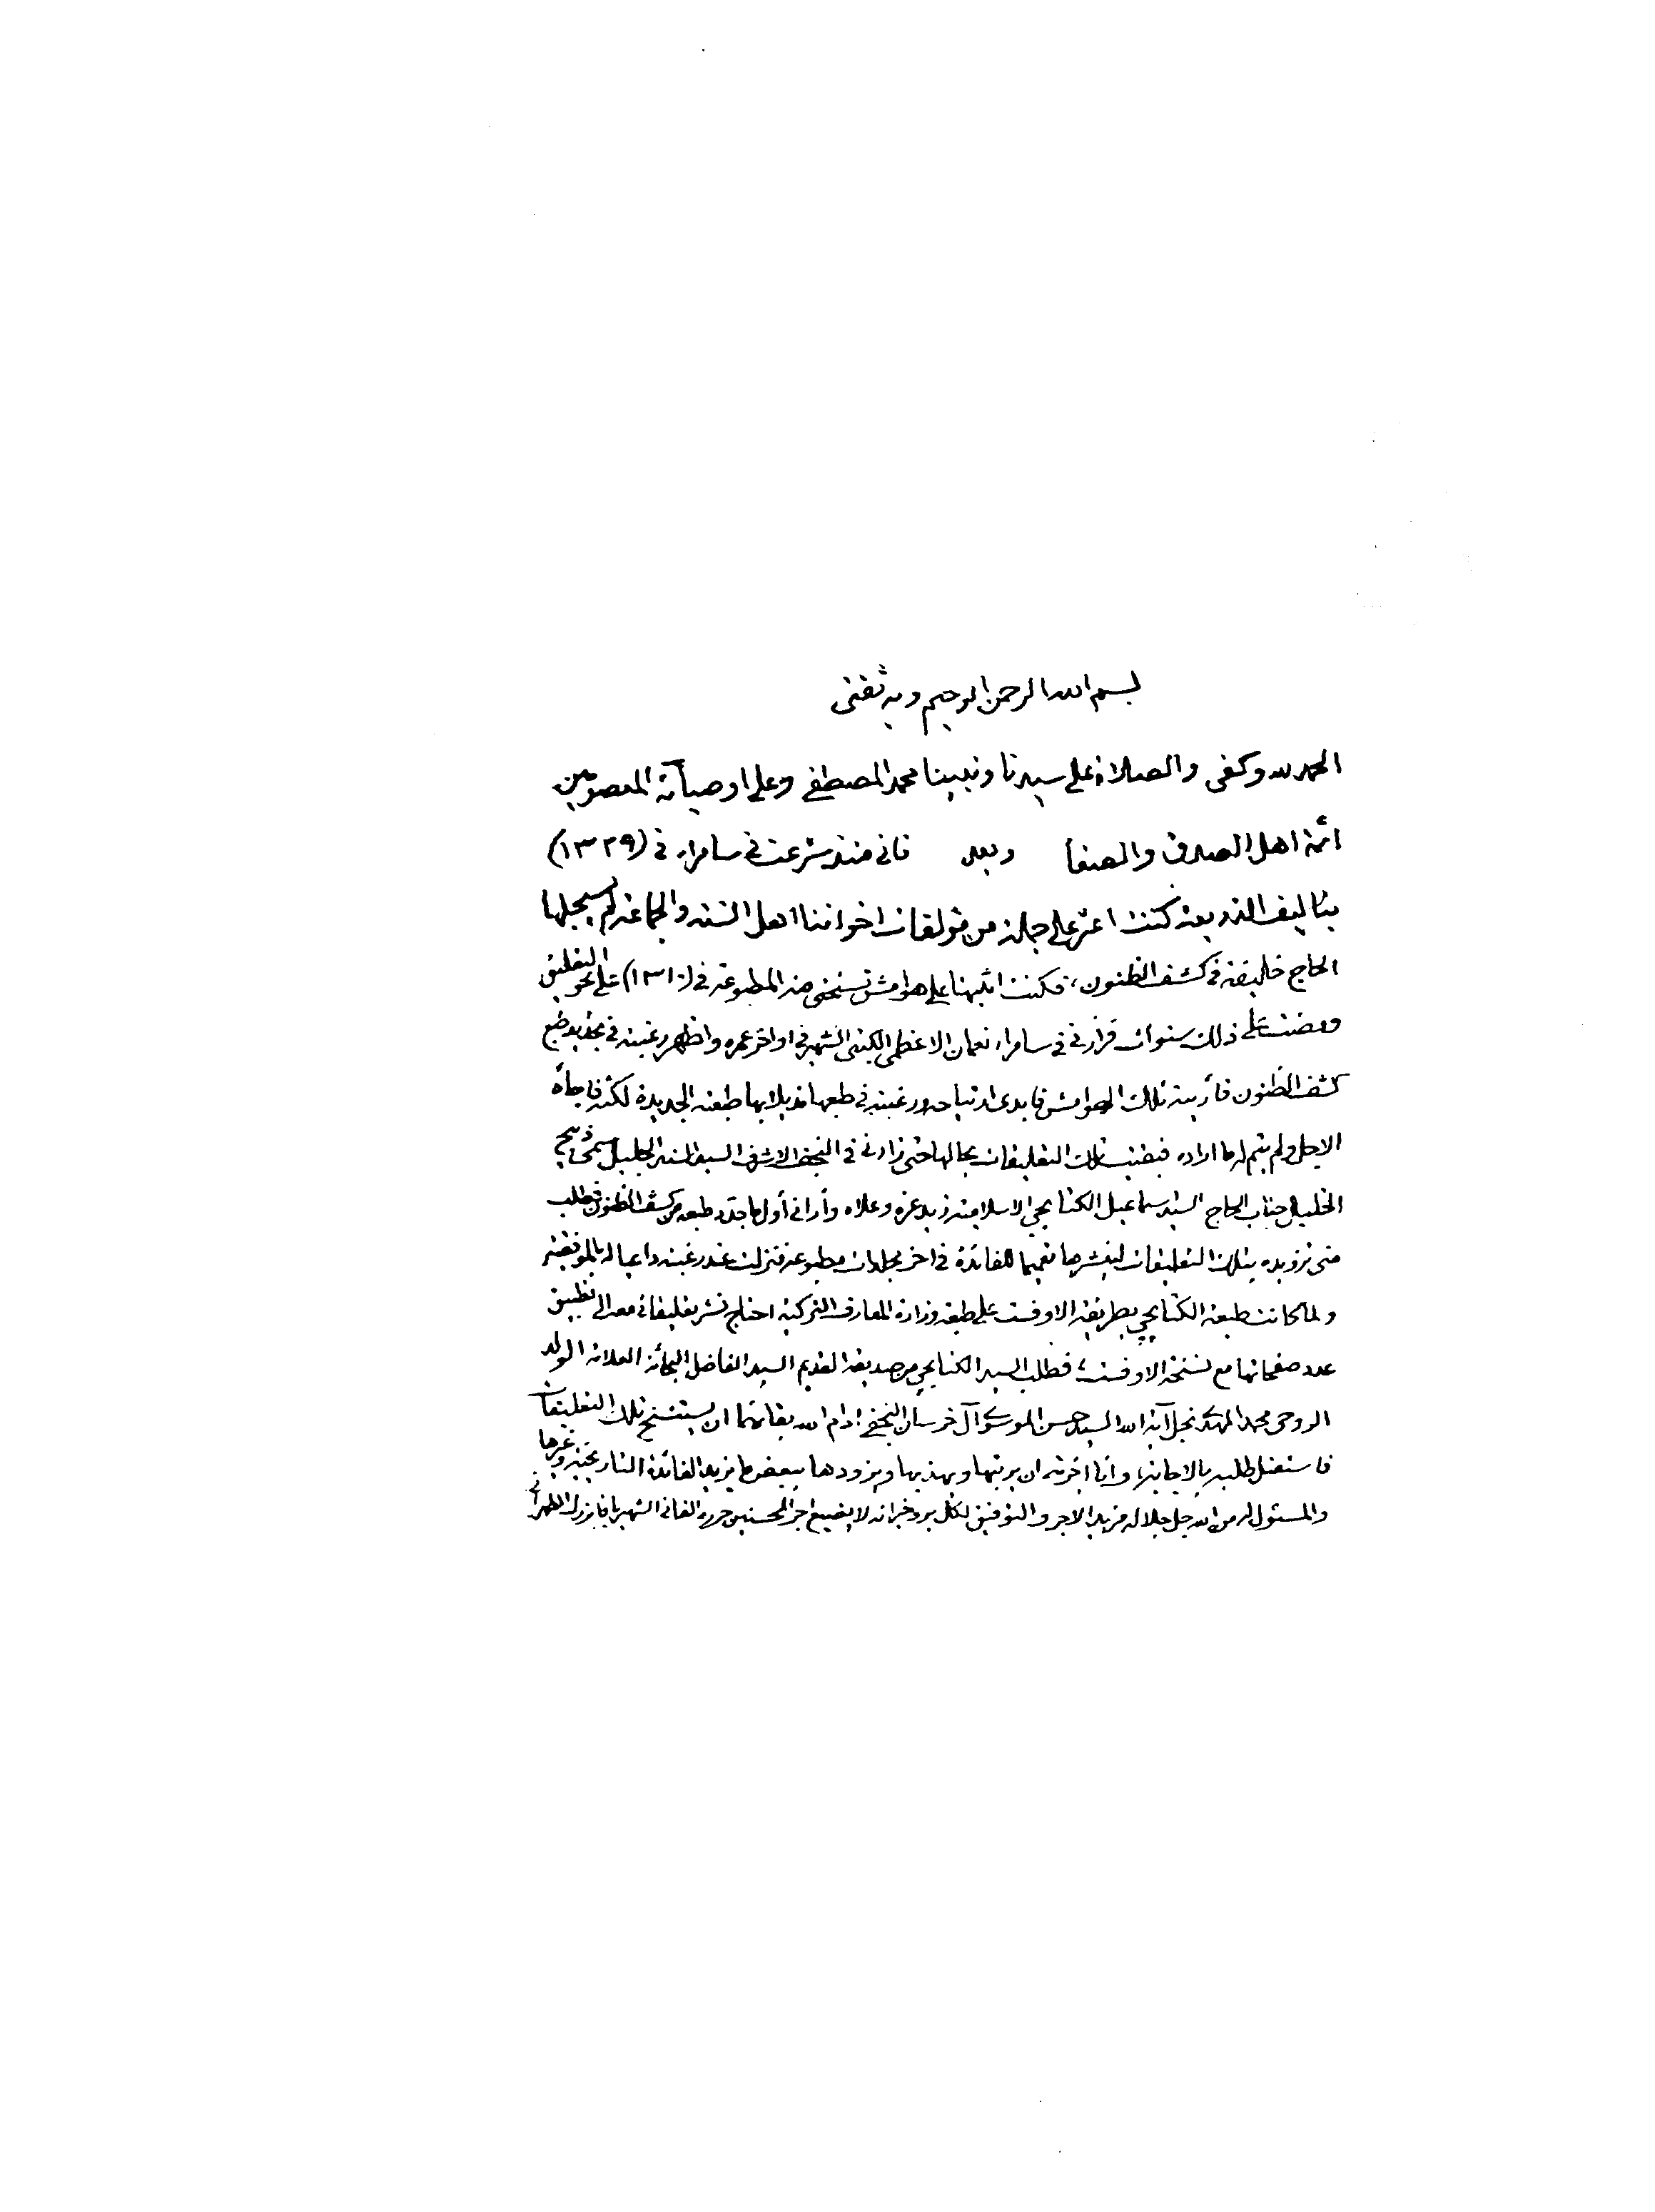 بسم الله الرحمن الرحيم وبه ثقتى
الحمد لله وكفى والصلاة على سيدنا ونبينا محمد المصطفى وعلى اوصيائه المعصومين
ائمة اهل الصدق والصفا وبعد فانى منذ شرعت فى سامراء فى (١٣٢٩)
بتاليف الذريعة كنت اعثر على جملة من مؤلفات اخواننا اهل السنة والجماعة لم يسجلها
الحاج خليفة فى كشف الظنون، فكنت اثبتها على هوامش نسختى منه المطبوعة فى (١٣١٠) على نحو التعليق
ومضت على ذلك سنوات فزارنى فى سامراء نعمان الاعظمى الكتبى الشهير فى اواخر عمره واظهر رغبته فى تجديد طبع
كشف الظنون فأريته تلك الهوامش فابدى ارتياحه ورغبته فى طبعها مذيلا بها طبعته الجديدة لكنه فاجأه
الاجل ولم يتم له ما اراده فبقيت تلك التعليقات بحالها حتى زارنى فى النجف الاشرف السيد السند الجليل سمى ذبيح
الخليل جناب الحاج السيد اسماعيل الكتابچى الاسلامية زيد عزه وعلاه وأرانى أول ما جدد طبعه من كشف الظنون فطلب
منى تزويده بتلك التعليقات لينشرها تعميما للفائدة فى اخر مجلدات مطبوعه فنزلت عند رغبته داعيا له بالموفقية
ولما كانت طبعة الكتابچى بطريقة الاوفست على طبعة وزارة المعارف التركية احتاج نشر تعليقاتى معه الى تطبيق
عدد صفحاتها مع نسخة الاوفست، فطلب السيد الكتابچى من صديقه القديم السيد الفاضل البحاثة العلامة الولد
الروحى محمد المهدى نجل آية الله السيد حسن الموسوى آل خرسان النجفى ادام الله بقائهما ان يستنسخ تلك التعليقات
فاستقبل طلبه بالاجابة، وانا اجزته ان يرتبها ويهذبها ويزودها ببعض ما يزيد الفائدة التاريخية وغيرها
والمسئول له من الله جل جلاله مزيد الاجر والتوفيق لكل بر وخير انه لا يضيع اجر المحسنين حرره الفانى الشهير باقا بزرك الطهرانى